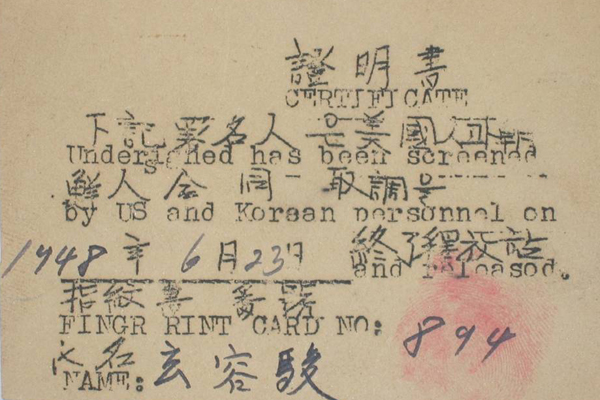 證明書
CERTIFICATE
下記署名人은美國人과朝
Undersigned has been screened
鮮人合同 取調를
by US and Korean personnel on
1948 年 6 月 23 日 終了釋放
and released.
指紋書 番號
FINGR RINT CARD NO: 894
氏名
NAME: 玄容駿